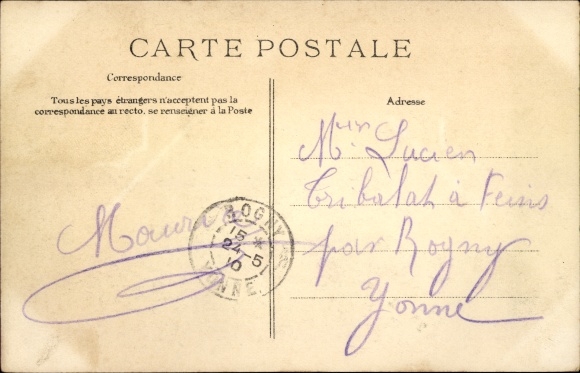 CARTE POSTALE
Correspondance
Tous les pays étrangers n'acceptent pas la
correspondance au recto, se renseigner à la Poste
Adresse
Mr Lucien
Tribalat à Feins
par Rogny
Yonne
ROGNY
15 *
24 - 5
10
YONNE